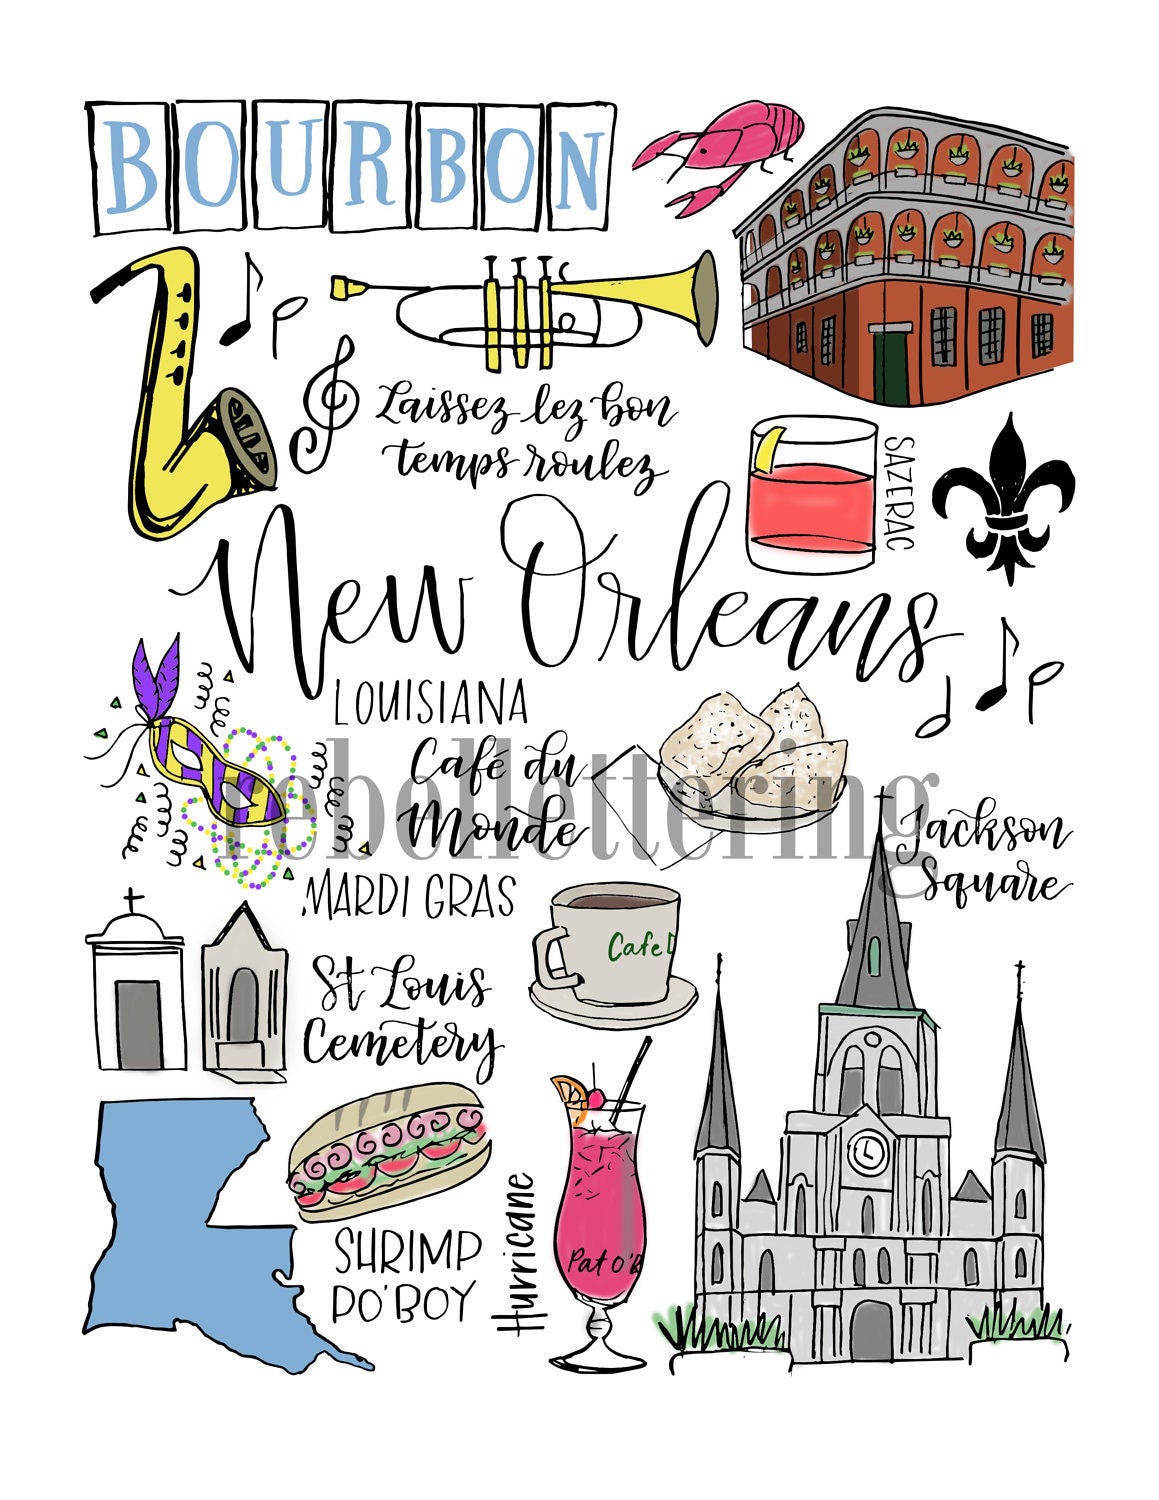 BOURBON
Laissez lez bon
temps roulez
SAZERAC
New Orleans
LOUISIANA
Café du
Monde
rebellettering
Jackson
Square
MARDI GRAS
Cafe D
St Louis
Cemetery
Hurricane
Pat O'B
SHRIMP
PO'BOY